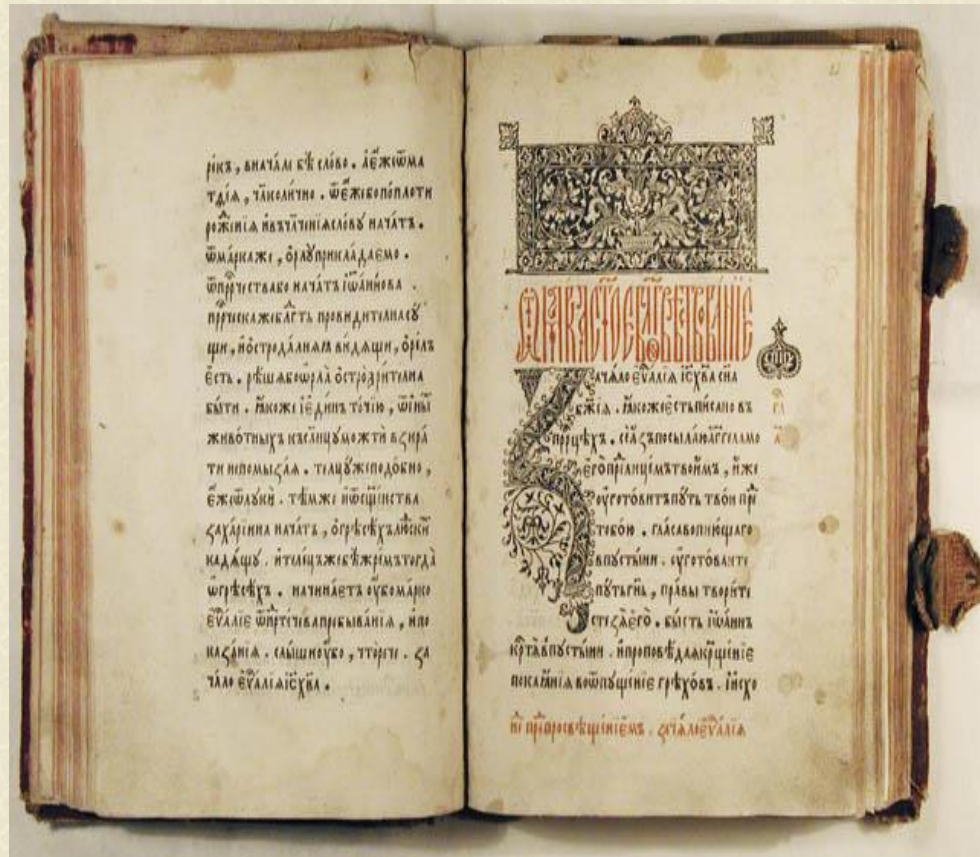 рекъ, вначалѣ бѣ сло́во. а҆е҆́жеѿма
тѳе́а, ꙗ҆́коли́чно. ѿе҆́жебопопло́ти
роже́нїѧ и҆въчл҃че́нїѧсло́вꙋ нача́тъ.
ѿма́ркаже, ѻ҆рлꙋ̀прикла́даемо.
ѿпрⷪ҇ро́чествабо нача́тъ і҆ѡа́ннова.
прⷪ҇ро́ческажебл҃гⷣть прови́дителнасꙋ́
щи, и҆ѻ҆́строда́лнѧѧ ви́дѧщи, ѻ҆ре́лъ
е҆́сть. рѣ́шѧбоѡ҆рла̀ ѻ҆строзри́телна
бы́ти. ꙗ҆́коже і҆е҆ди́нъ то́чїю, ѿи҆ны́
живо́тныхъ къслн҃цꙋмо́жетъ взира́
ти непомиза́ѧ. телцꙋ́жеподо́бно,
е҆́жеѿлꙋкѝ. тѣ́мже и҆ѿсщ҃е́нства
заха́рїина нача́тъ, ѡ҆грѣсѣ́хълю́дски
кадѧ́щꙋ. и҆теле́цъжебѣ́жре́мътогда̀
ѡ҆грѣсѣ́хъ. начина́етъ ᲂу҆́бома́рко
е҆ѵⷢ҇а́лїе ѿпрⷣте́чевапребыва́нїѧ, и҆по
каза́нїѧ. слы́шиᲂу҆́бо, чтѻ̀рече. за
ча́ло е҆ѵⷢ҇а́лїѧі҆с҃х҃ва.
ѿма́рка ст҃о́е бл҃говѣствова́нїе
Зача́ло е҆ѵⷢ҇а́лїѧ і҆с҃х҃ва сн҃а
бж҃їѧ. ꙗ҆́коже е҆́сть пи́сано въ
прⷪ҇ро́цѣхъ. се́а҆зъпосыла́юа҆́гг҃ламо
е҆го̀пре́длице́мътвои́мъ, и҆́же
ᲂу҆гото́витъпꙋ́ть тво́и прⷣе
тобо́ю. гла́съвопїю́щаго
впꙋсты́ни. ᲂу҆гото́ваите
пꙋ́тьгнⷭ҇ь, пра́вы твори́те
сте́зѧе҆гѡ̀. бы́сть і҆ѡа́ннъ
крⷭ҇тѧ́впꙋсты́ни. и҆проповѣ́даѧкрⷳще́нїе
покаѧ́нїѧ воѿпꙋще́нїе грѣхо́въ. и҆и҆схо
не́ пре́дпросвѣще́нїемъ. зача́лое҆ѵⷢ҇а́лїѧ